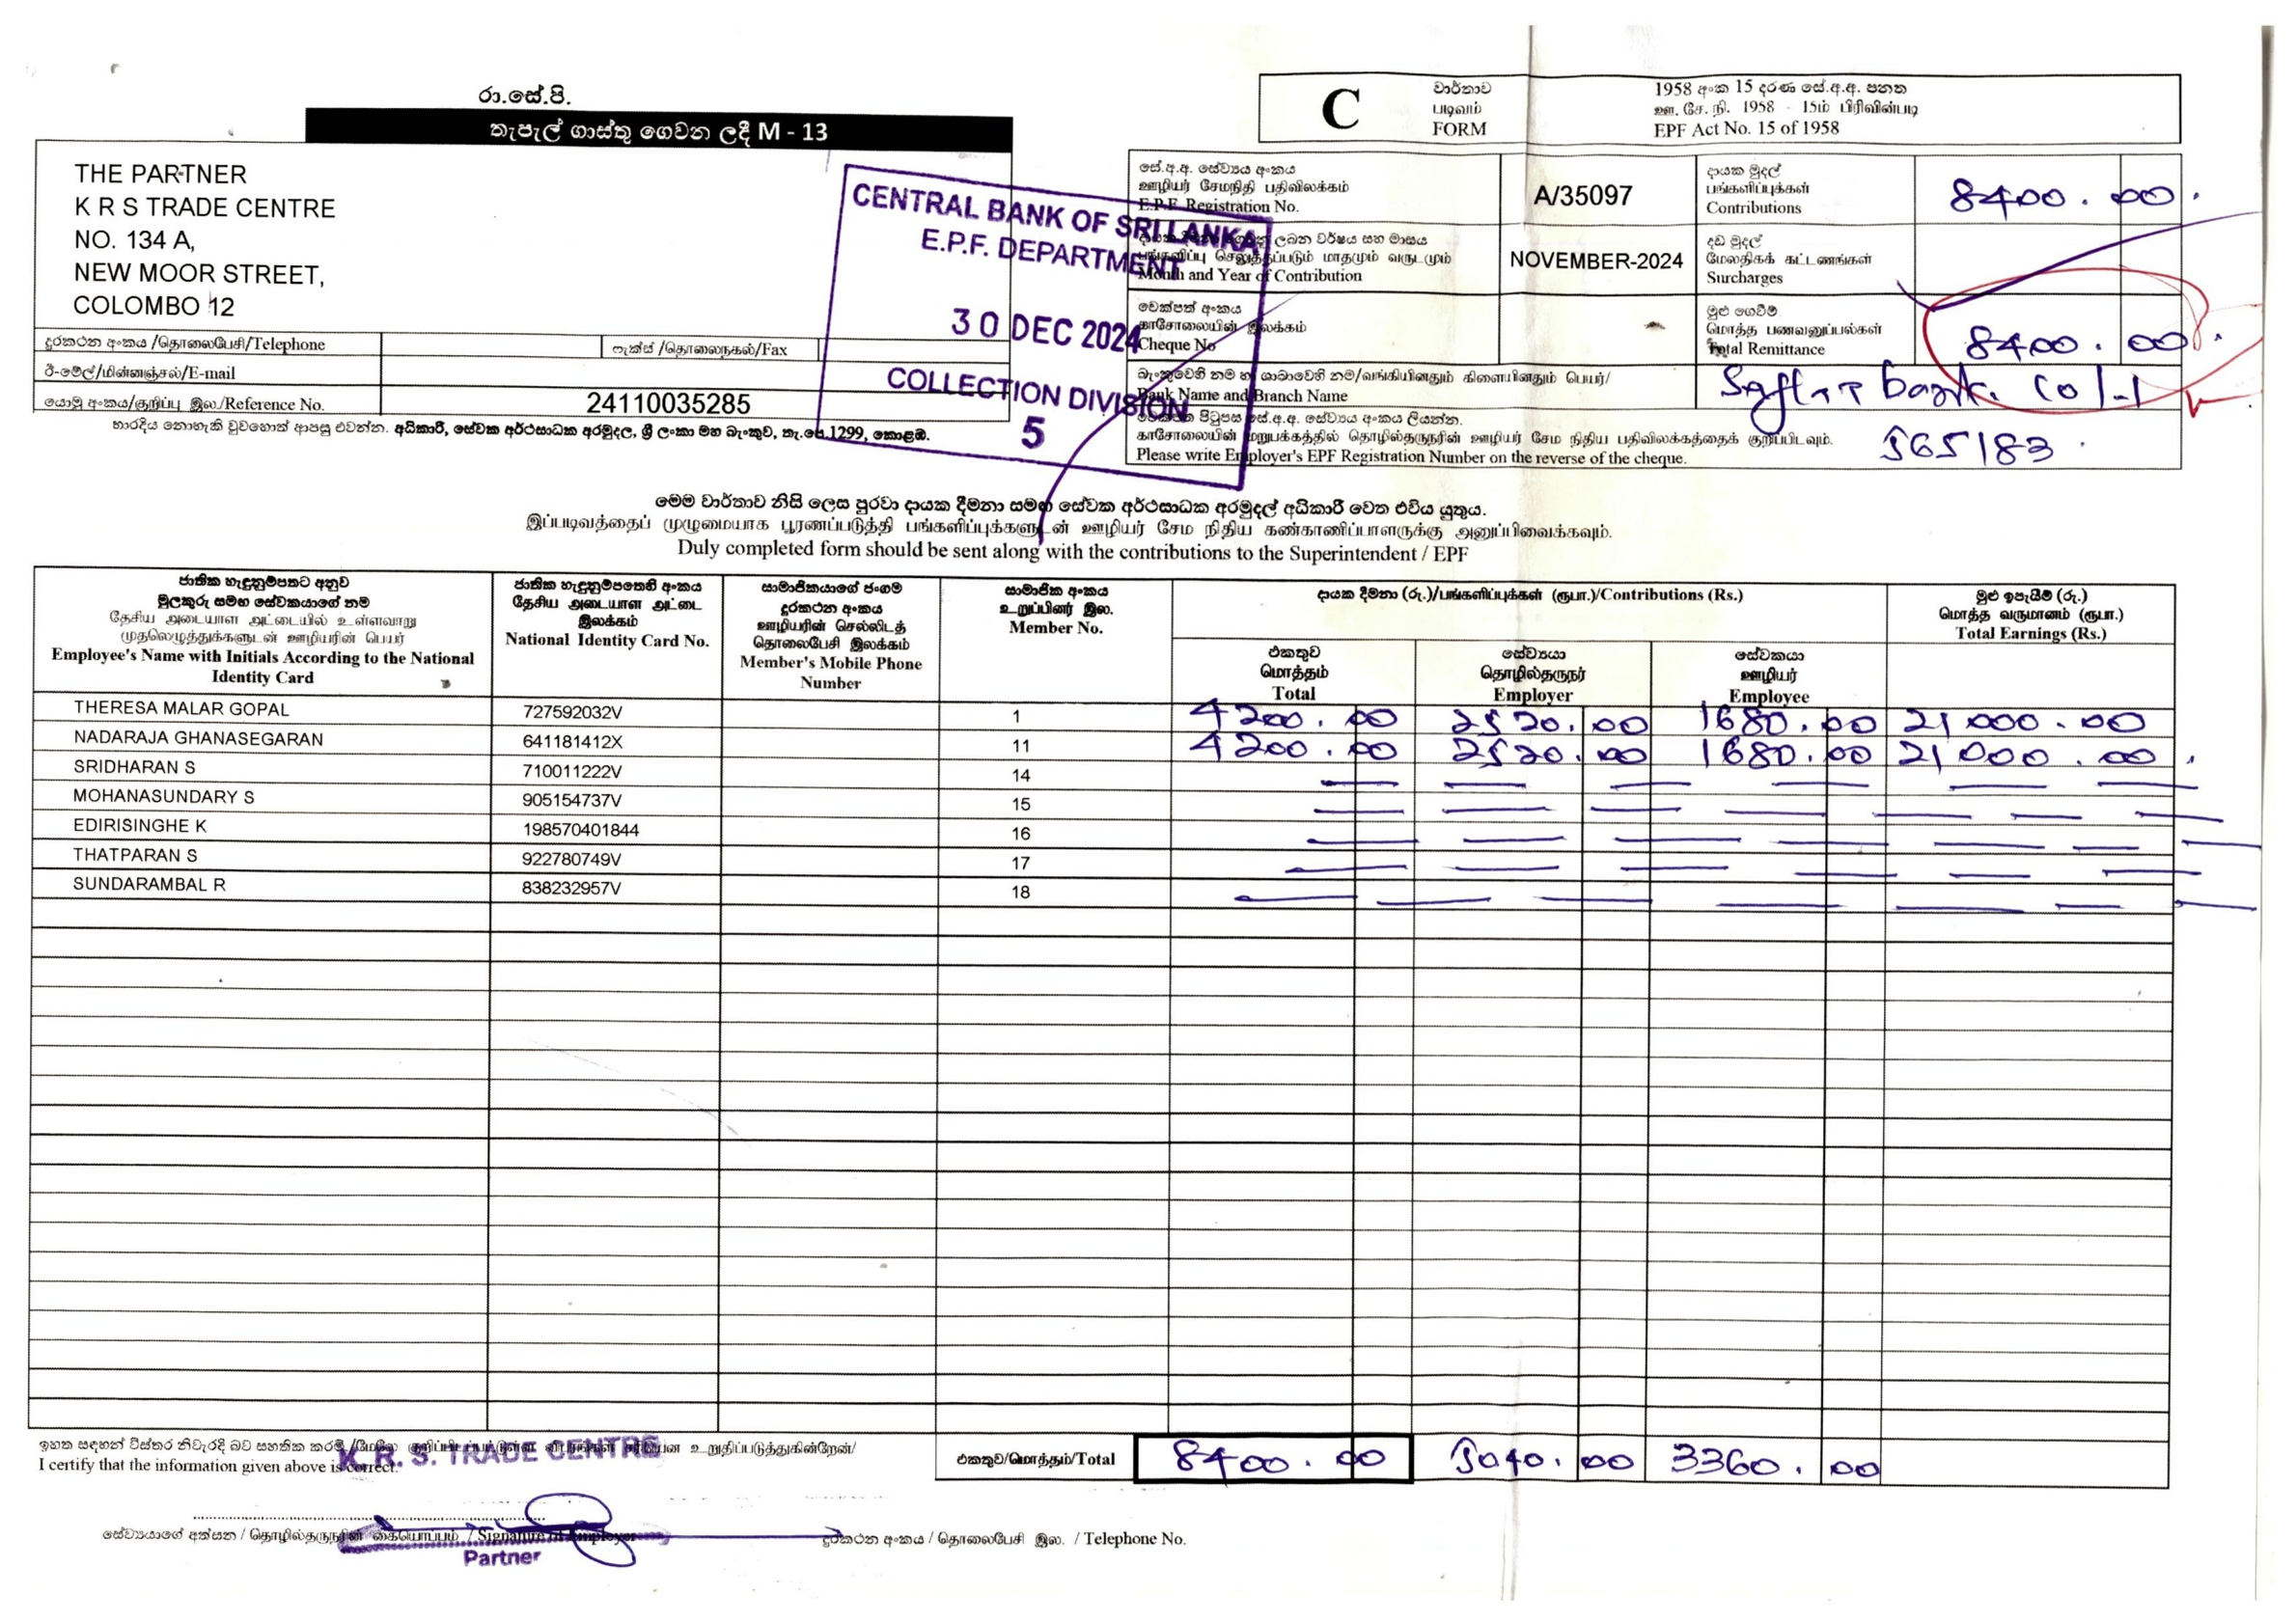 රා.සේ.පි.
තැපැල් ගාස්තු ගෙවන ලදී M - 13
THE PARTNER
K R S TRADE CENTRE
NO. 134 A,
NEW MOOR STREET,
COLOMBO 12
දුරකථන අංකය /தொலைபேசி/Telephone
ෆැක්ස් /தொலைநகல்/Fax
ඊ-මේල්/மின்னஞ்சல்/E-mail
යොමු අංකය/குறிப்பு இல./Reference No. 24110035285
භාරදිය නොහැකි වුවහොත් ආපසු එවන්න. අධිකාරී, සේවක අර්ථසාධක අරමුදල, ශ්‍රී ලංකා මහ බැංකුව, තැ.පෙ.1299, කොළඹ.
CENTRAL BANK OF SRI LANKA
E.P.F. DEPARTMENT
30 DEC 2024
COLLECTION DIVISION
5
C
වාර්තාව
படிவம்
FORM
1958 අංක 15 දරණ සේ.අ.අ. පනත
ஊ. சே. நி. 1958 - 15ம் பிரிவின்படி
EPF Act No. 15 of 1958
සේ.අ.අ. සේව්‍යය අංකය
ஊழியர் சேமநிதி பதிவிலக்கம்
E.P.F. Registration No.
A/35097
දායක මුදල්
பங்களிப்புக்கள்
Contributions
8400.00.
ලබන වර්ෂය සහ මාසය
பங்களிப்பு செலுத்தப்படும் மாதமும் வருடமும்
Month and Year of Contribution
NOVEMBER-2024
දඩ මුදල්
மேலதிகக் கட்டணங்கள்
Surcharges
චෙක්පත් අංකය
காசோலையின் இலக்கம்
Cheque No
මුළු ගෙවීම්
மொத்த பணவனுப்பல்கள்
Total Remittance
8400.00.
බැංකුවෙහි නම හා ශාඛාවෙහි නම/வங்கியினதும் கிளையினதும் பெயர்/
Bank Name and Branch Name
bank. Col-1
පිටුපස සේ.අ.අ. සේව්‍යය අංකය ලියන්න.
காசோலையின் மறுபக்கத்தில் தொழில்தருநரின் ஊழியர் சேம நிதிய பதிவிலக்கத்தைக் குறிப்பிடவும்.
Please write Employer's EPF Registration Number on the reverse of the cheque.
565183.
මෙම වාර්තාව නිසි ලෙස පුරවා දායක දීමනා සමඟ සේවක අර්ථසාධක අරමුදල් අධිකාරී වෙත එවිය යුතුය.
இப்படிவத்தைப் முழுமையாக பூரணப்படுத்தி பங்களிப்புக்களுடன் ஊழியர் சேம நிதிய கண்காணிப்பாளருக்கு அனுப்பிவைக்கவும்.
Duly completed form should be sent along with the contributions to the Superintendent / EPF
ජාතික හැඳුනුම්පතට අනුව
මුලකුරු සමඟ සේවකයාගේ නම
தேசிய அடையாள அட்டையில் உள்ளவாறு
முதலெழுத்துக்களுடன் ஊழியரின் பெயர்
Employee's Name with Initials According to the National
Identity Card
ජාතික හැඳුනුම්පතෙහි අංකය
தேசிய அடையாள அட்டை
இலக்கம்
National Identity Card No.
සාමාජිකයාගේ ජංගම
දුරකථන අංකය
ஊழியரின் செல்லிடத்
தொலைபேசி இலக்கம்
Member's Mobile Phone
Number
සාමාජික අංකය
உறுப்பினர் இல.
Member No.
දායක දීමනා (රු.)/பங்களிப்புக்கள் (ரூபா.)/Contributions (Rs.)
එකතුව
மொத்தம்
Total
සේව්‍යයා
தொழில்தருநர்
Employer
සේවකයා
ஊழியர்
Employee
මුළු ඉපැයීම් (රු.)
மொத்த வருமானம் (ரூபா.)
Total Earnings (Rs.)
THERESA MALAR GOPAL 727592032V 1 4200.00 2520.00 1680.00 21000.00
NADARAJA GHANASEGARAN 641181412X 11 4200.00 2520.00 1680.00 21000.00.
SRIDHARAN S 710011222V 14
MOHANASUNDARY S 905154737V 15
EDIRISINGHE K 198570401844 16
THATPARAN S 922780749V 17
SUNDARAMBAL R 838232957V 18
ඉහත සඳහන් විස්තර නිවැරදි බව සහතික කරමි /மேலே குறிப்பிடப்பட்டுள்ள விபரங்கள் சரியென உறுதிப்படுத்துகின்றேன்/
I certify that the information given above is correct.
K. R. S. TRADE CENTRE
එකතුව/மொத்தம்/Total 8400.00 5040.00 3360.00
සේව්‍යයාගේ අත්සන / தொழில்தருநரின் கையொப்பம் / Signature of Employer
Partner
දුරකථන අංකය / தொலைபேசி இல. / Telephone No.